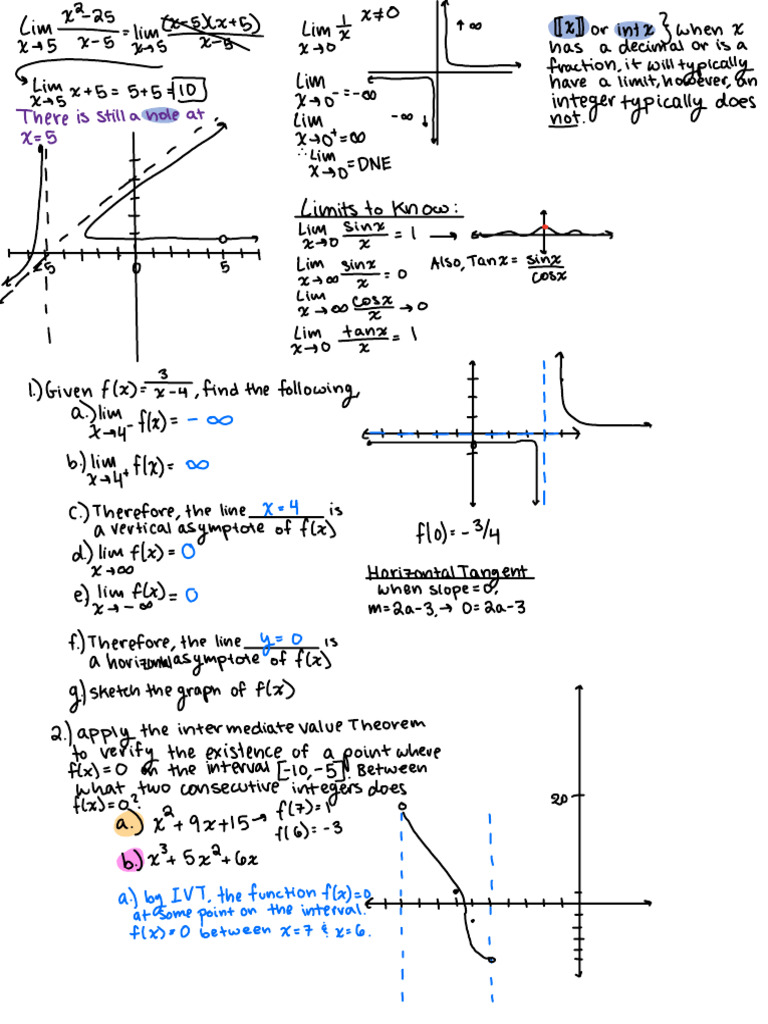 Lim x→5 x²-25 / x-5 = lim x→5 (x-5)(x+5) / x-5
Lim x→5 x+5 = 5+5 = 10
There is still a hole at
x=5
-5 0 5
Lim x→0 1/x x≠0
↑∞
Lim x→0⁻ = -∞
-∞ ↓
Lim x→0⁺ = ∞
∴ Lim x→0 = DNE
⟦x⟧ or int x } when x
has a decimal or is a
fraction, it will typically
have a limit, however, an
integer typically does
not.
Limits to Know:
Lim x→0 sinx/x = 1 →
Lim x→∞ sinx/x = 0
Also, Tanx = sinx/cosx
Lim x→∞ cosx/x → 0
Lim x→0 tanx/x = 1
1.) Given f(x)= 3/x-4, find the following,
a.) lim x→4⁻ f(x) = -∞
b.) lim x→4⁺ f(x) = ∞
c.) Therefore, the line x=4 is
a vertical asymptote of f(x)
d.) lim x→∞ f(x) = 0
e.) lim x→-∞ f(x) = 0
f.) Therefore, the line y=0 is
a horizontal asymptote of f(x)
g.) sketch the graph of f(x)
0
f(0) = -3/4
Horizontal Tangent
when slope=0,
m=2a-3, → 0=2a-3
2.) apply the intermediate value Theorem
to verify the existence of a point where
f(x)=0 on the interval [-10,-5]. Between
what two consecutive integers does
f(x)=0?
a.) x²+9x+15 → f(7)=1
f(6)=-3
b.) x³+5x²+6x
a.) by IVT, the function f(x)=0
at some point on the interval.
f(x)=0 between x=7 & x=6.
20